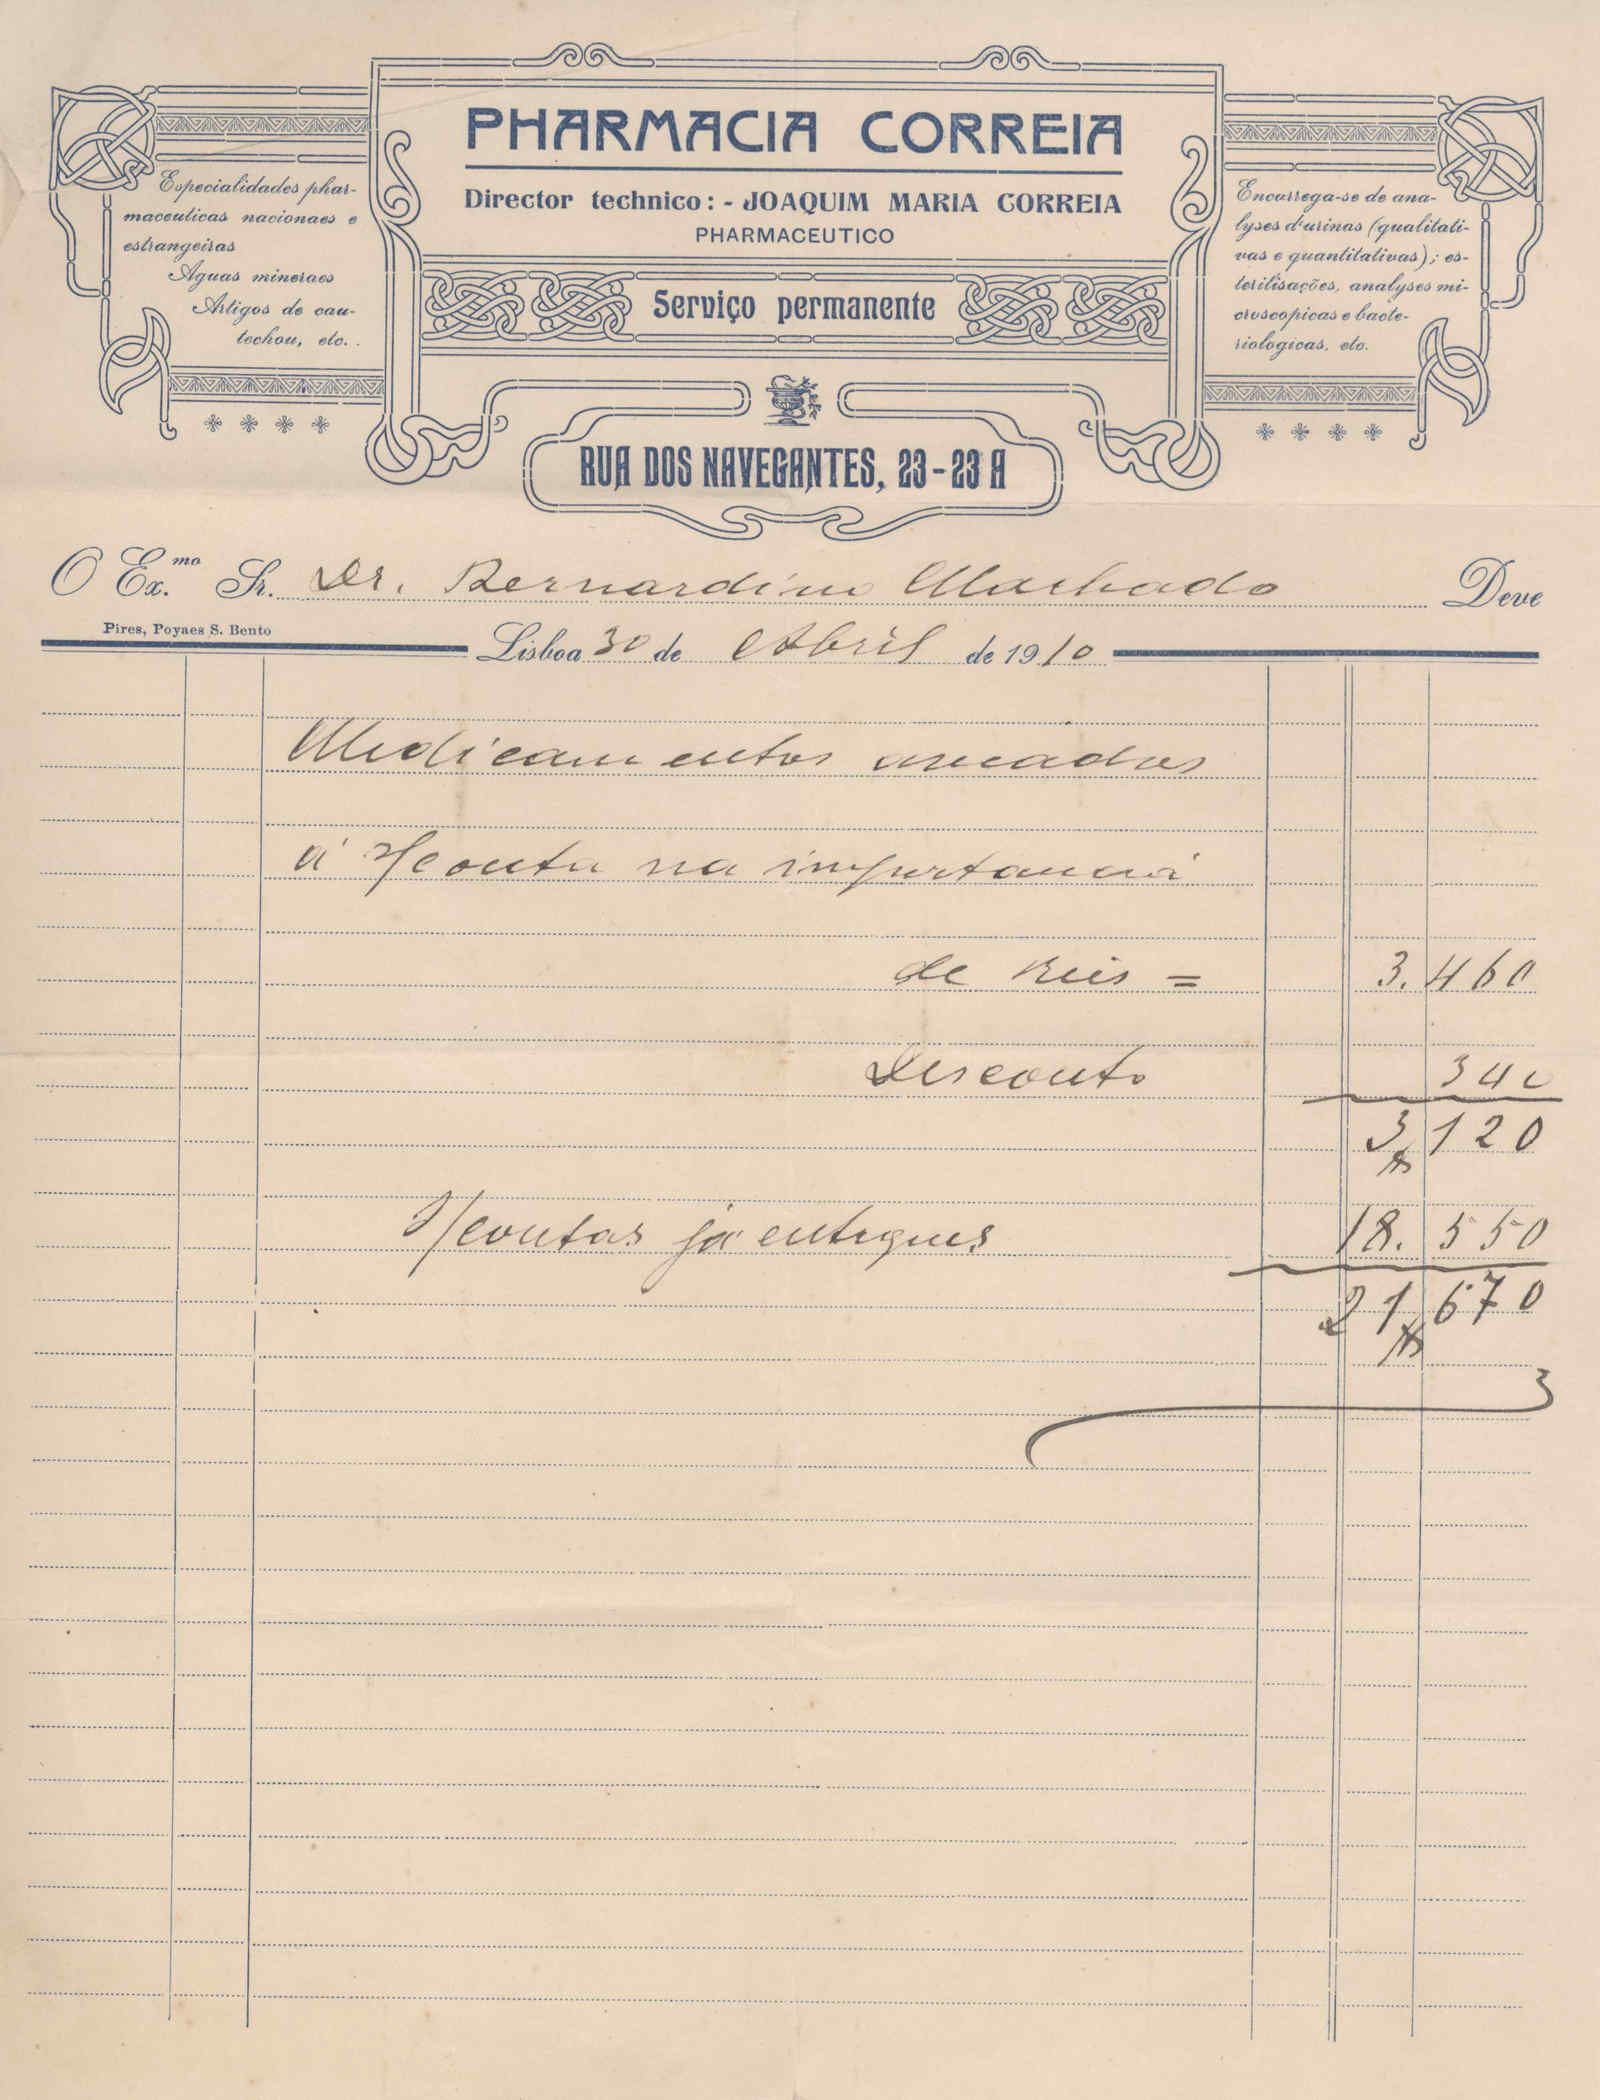 PHARMACIA CORREIA
Director technico: - JOAQUIM MARIA CORREIA
PHARMACEUTICO
Serviço permanente
RUA DOS NAVEGANTES, 23-23 A
Especialidades phar-
maceuticas nacionaes e
estrangeiras
Aguas mineraes
Artigos de cau-
techou, etc..
Encarrega-se de ana-
lyses d'urinas (qualitati-
vas e quantitativas); es-
terilisações, analyses mi-
croscopicas e bacte-
riologicas, etc.
O Ex.mo Sr. Dr. Bernardino Machado Deve
Pires, Poyaes S. Bento
Lisboa 30 de Abril de 1910
Medicamentos aviados
á conta na importancia
de Reis = 3.460
Desconto 340
3,120
contas já entregues 18.550
21,670